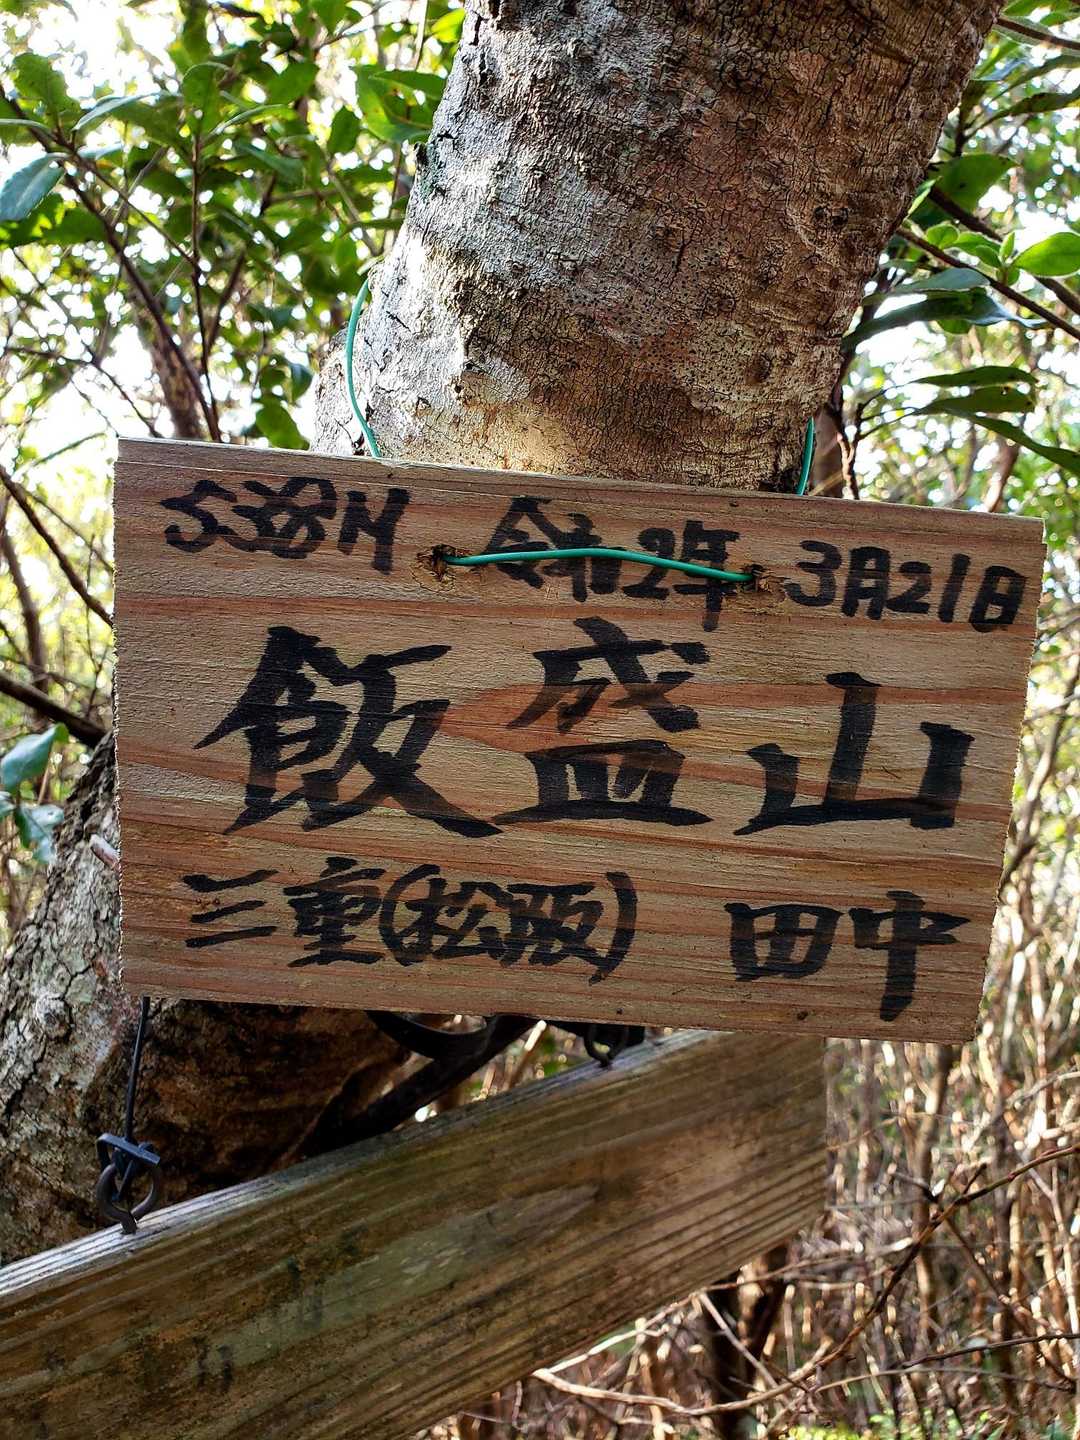 538M 令和2年 3月21日
飯盛山
三重(松阪) 田中